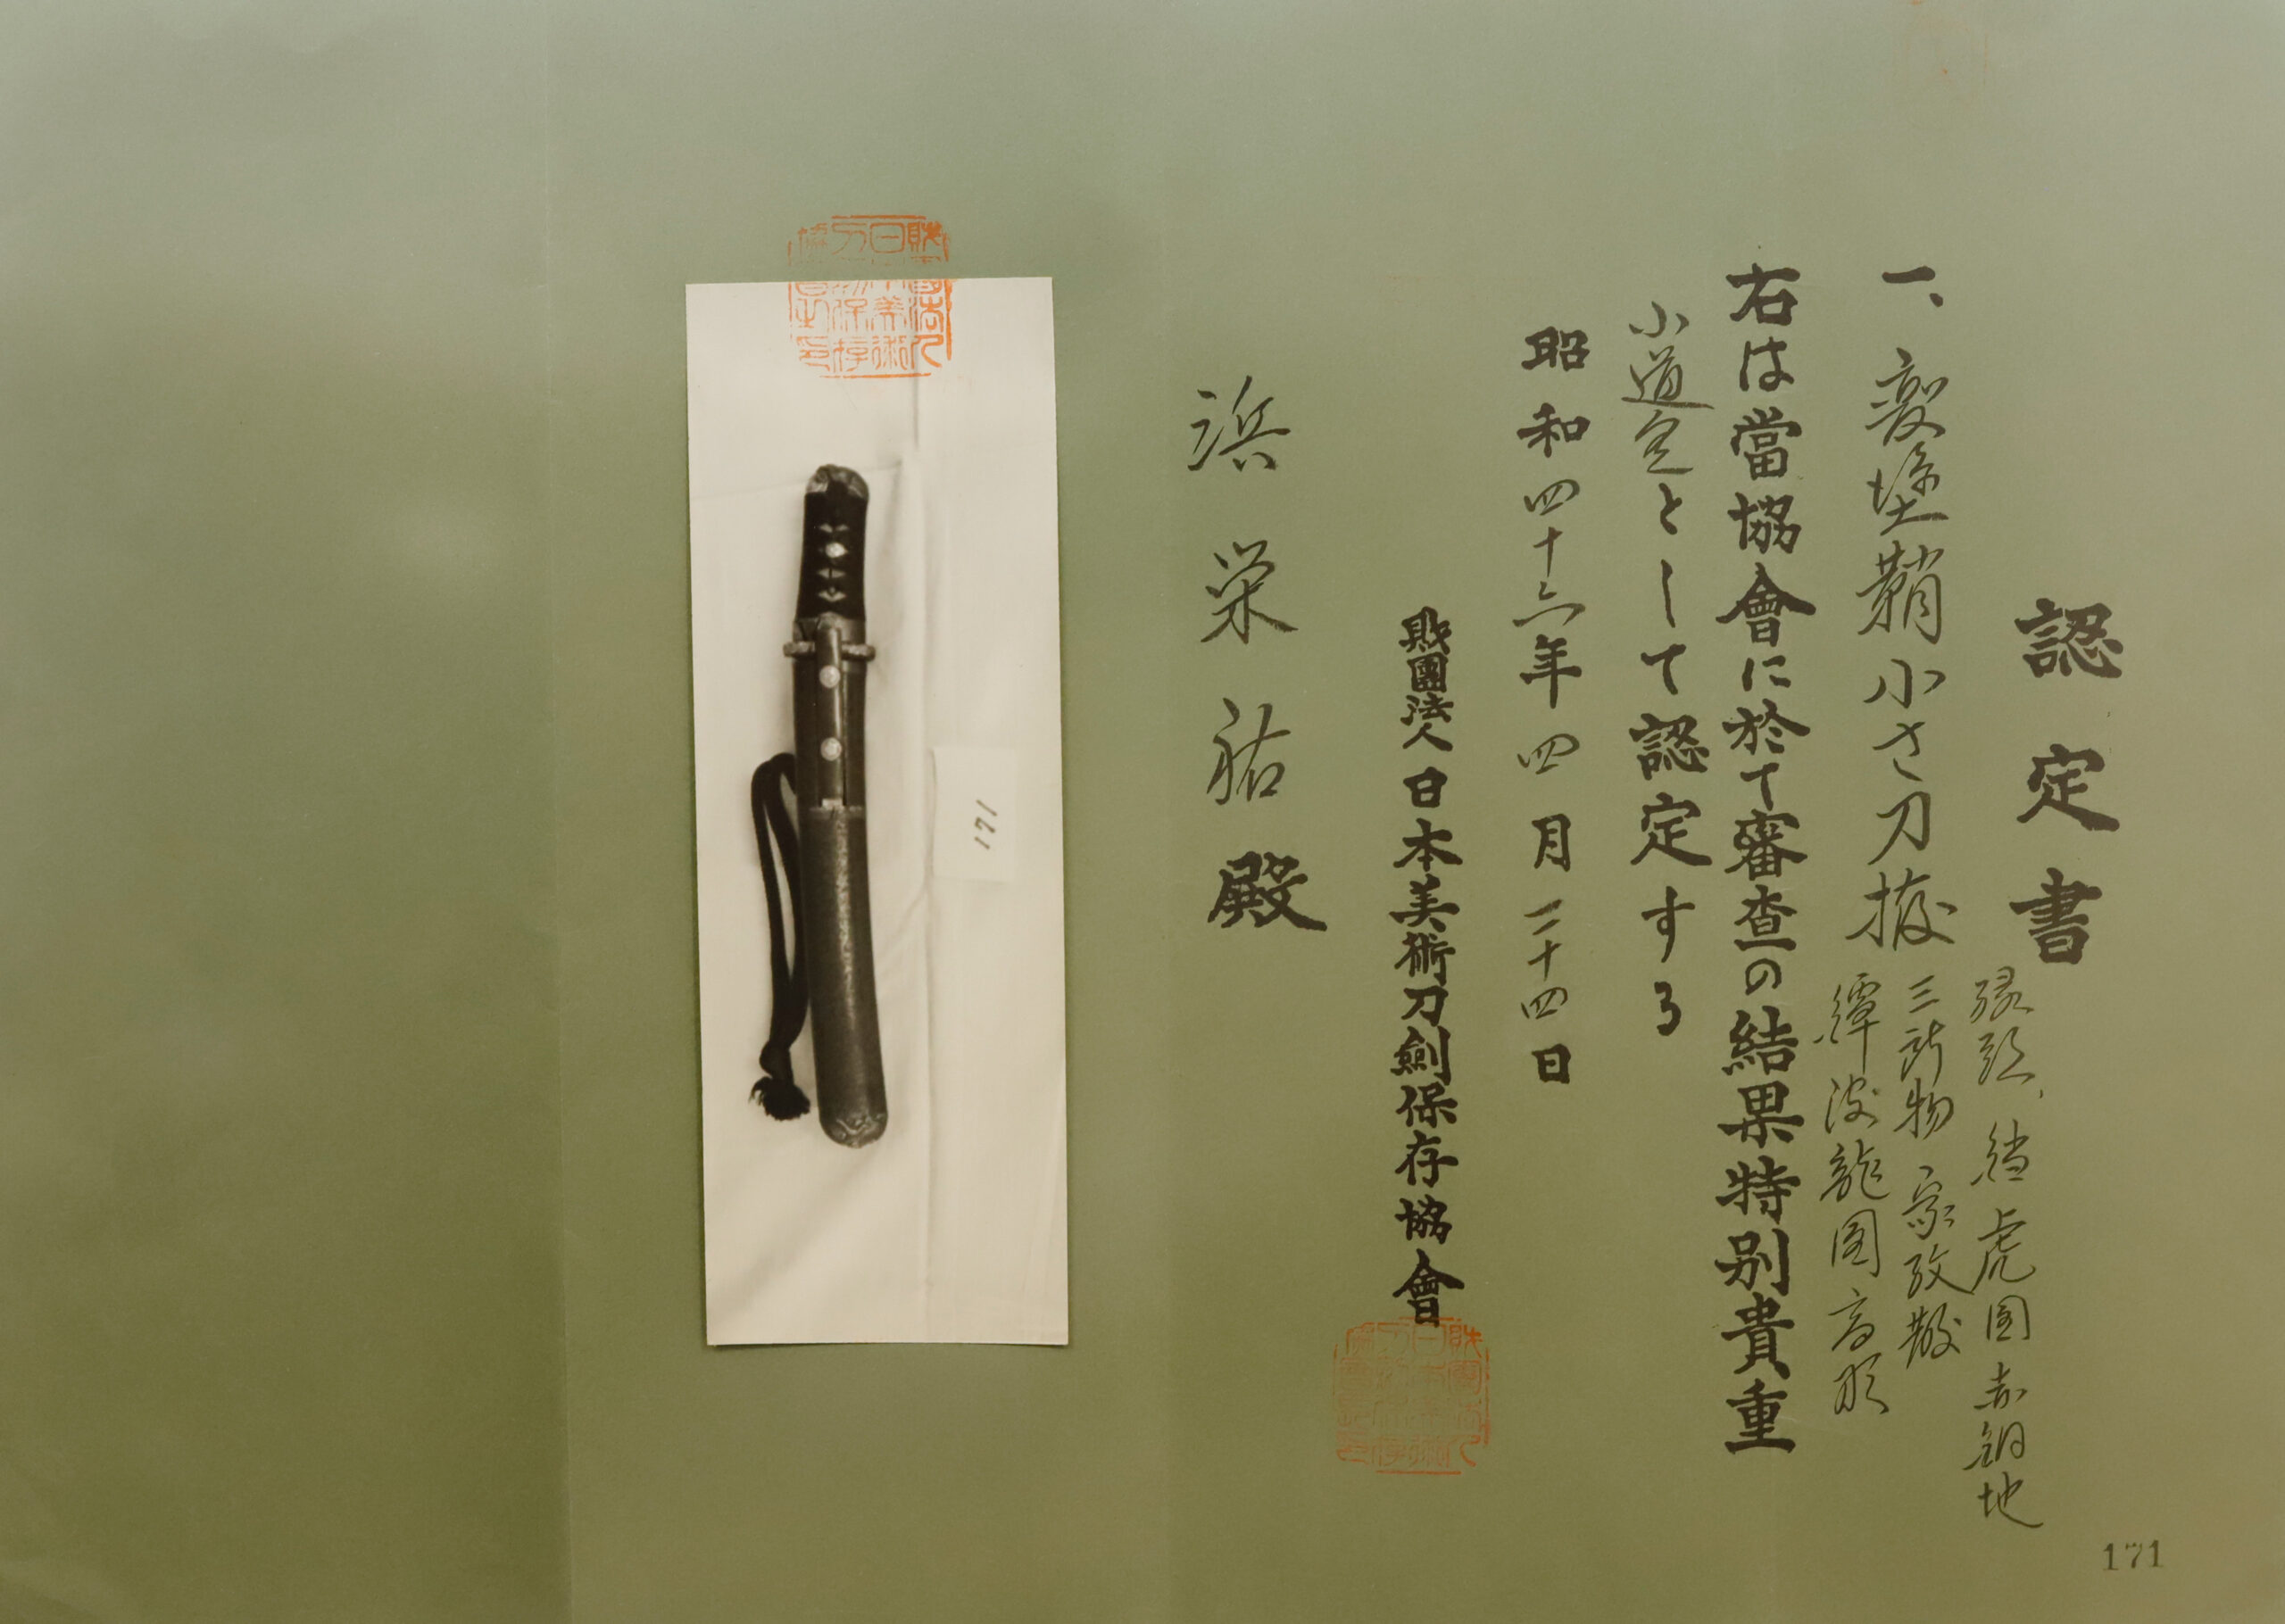 認定書
一、変塗鞘小さ刀拵
縁頭、鐺 虎図 赤銅地
三所物 家紋散
鐔 波龍図 高彫
右は當協會に於て審査の結果特別貴重
小道具として認定する
昭和四十六年四月二十四日
財團法人日本美術刀劍保存協會
浜栄祐殿
171
171